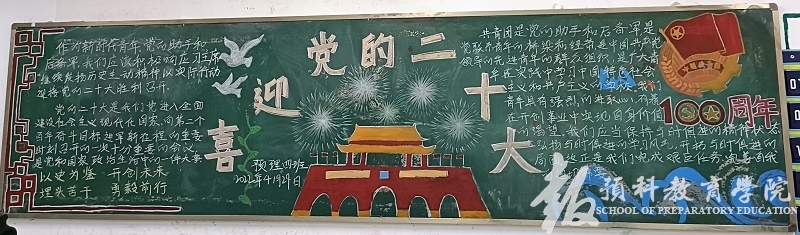 喜迎党的二十大
作为新时代青年,党的助手和
后备军,我们应该积极响应习主席
继续发扬历史主动精神以实际行动
迎接党的二十大胜利召开.
党的二十大是我们党进入全面
建设社会主义现代化国家,向第二个
百年奋斗目标进军新征程的重要
时刻召开的一次十分重要的会议,
是党和国家政治生活中的一件大事
以史为鉴 开创未来
埋头苦干 勇毅前行
预理四班
2022年4月21日
共青团是党的助手和后备军是
党联系青年的桥梁和纽带是中国共产党
领导的先进青年的群众组织,是广大青
年在实践中学习中国特色社会
主义和共产主义的学校,我们
100周年
预科教育学院
SCHOOL OF PREPARATORY EDUCATION